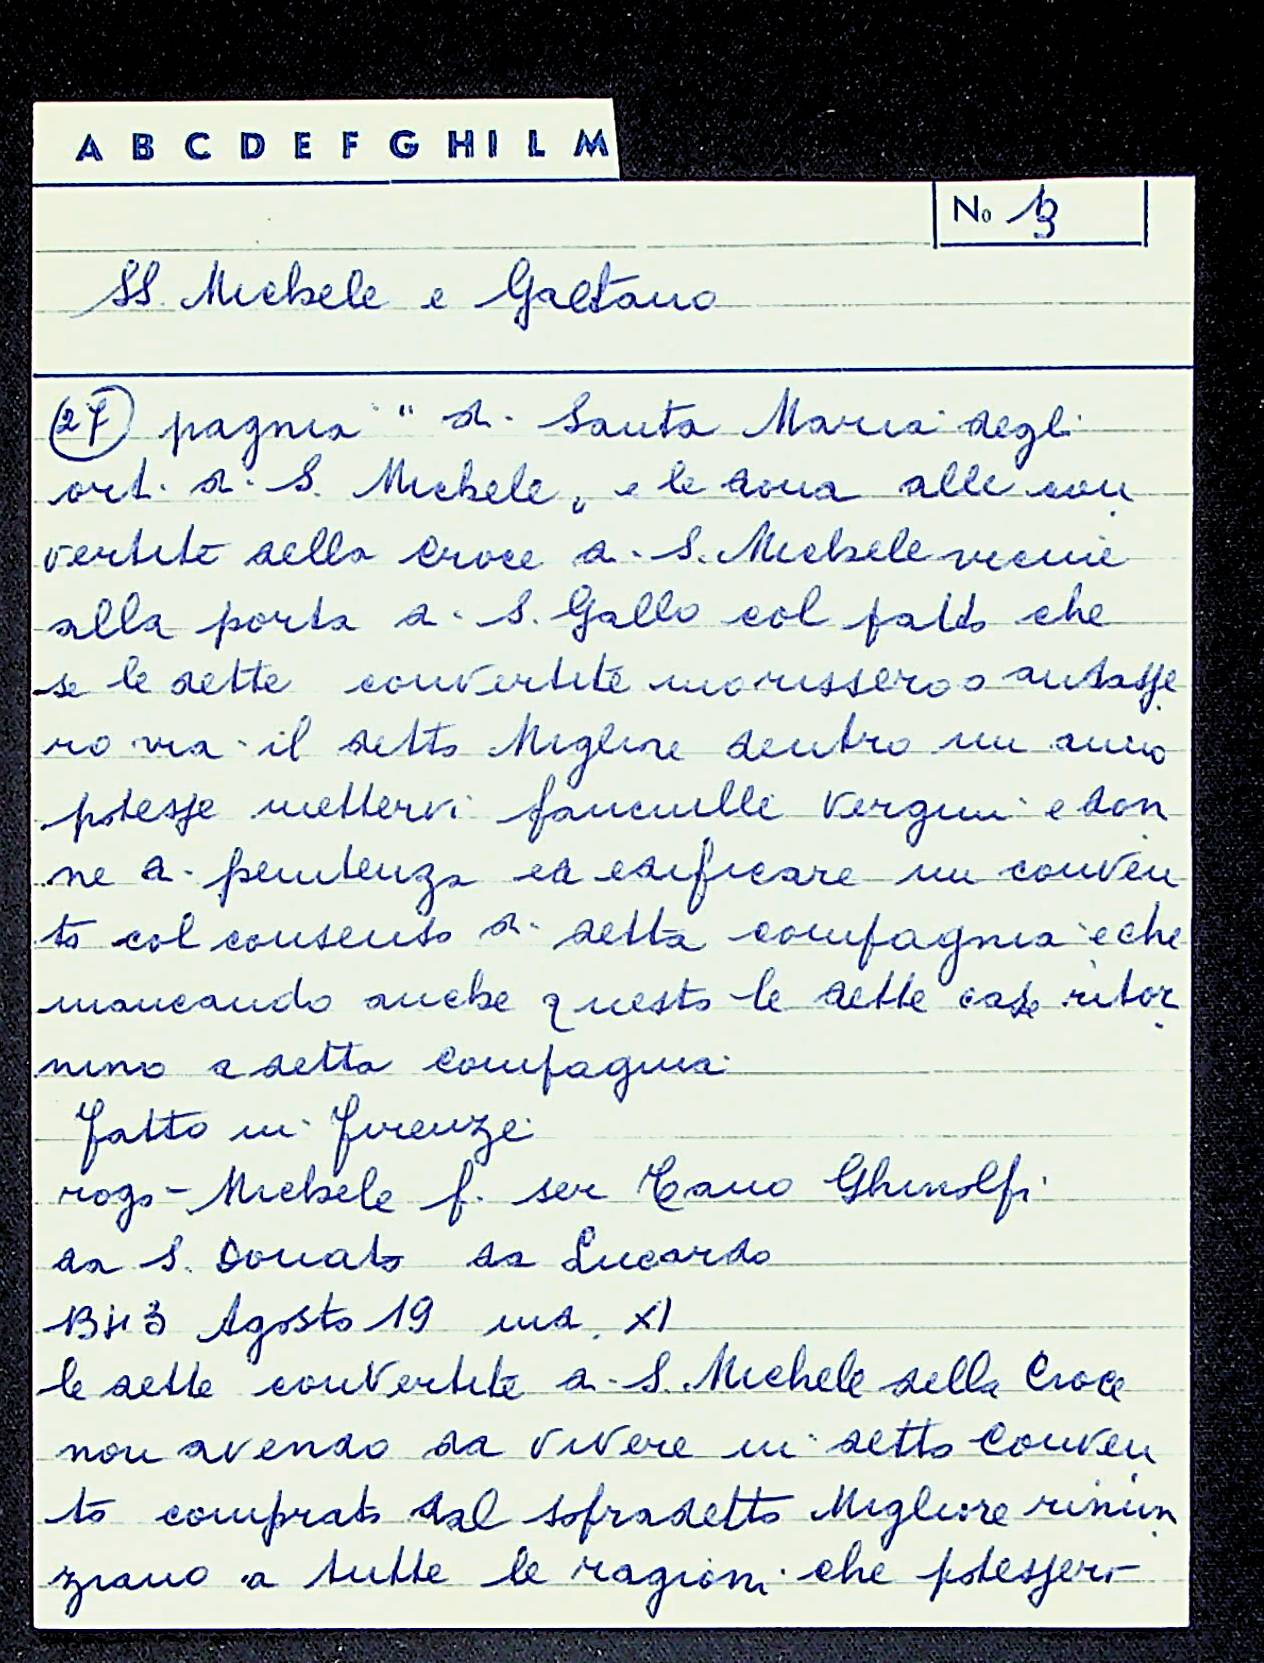 A B C D E F G H I L M
No 13
SS. Michele e Gaetano
(27) pagnia " di Santa Maria degli
orti di S. Michele, e le dona alle con
vertite della Croce di S. Michele vicine
alla porta a S. Gallo col patto che
se le dette convertite morissero o andasse
ro via il detto Migliore dentro un anno
potesse mettervi fanciulle vergini e don
ne di penitenza ed edificare un conven
to col consenso di detta compagnia e che
mancando anche questo le dette case ritor
nino a detta compagnia
fatto in Firenze
rogo - Michele f. ser Cano Ghinolfi
da S. Donato da Lucardo
Agosto 19 ind. XI
le dette convertite di S. Michele della Croce
non avendo da vivere in detto Conven
to comprato dal sopradetto Migliore rinun
ziano a tutte le ragioni che potessero